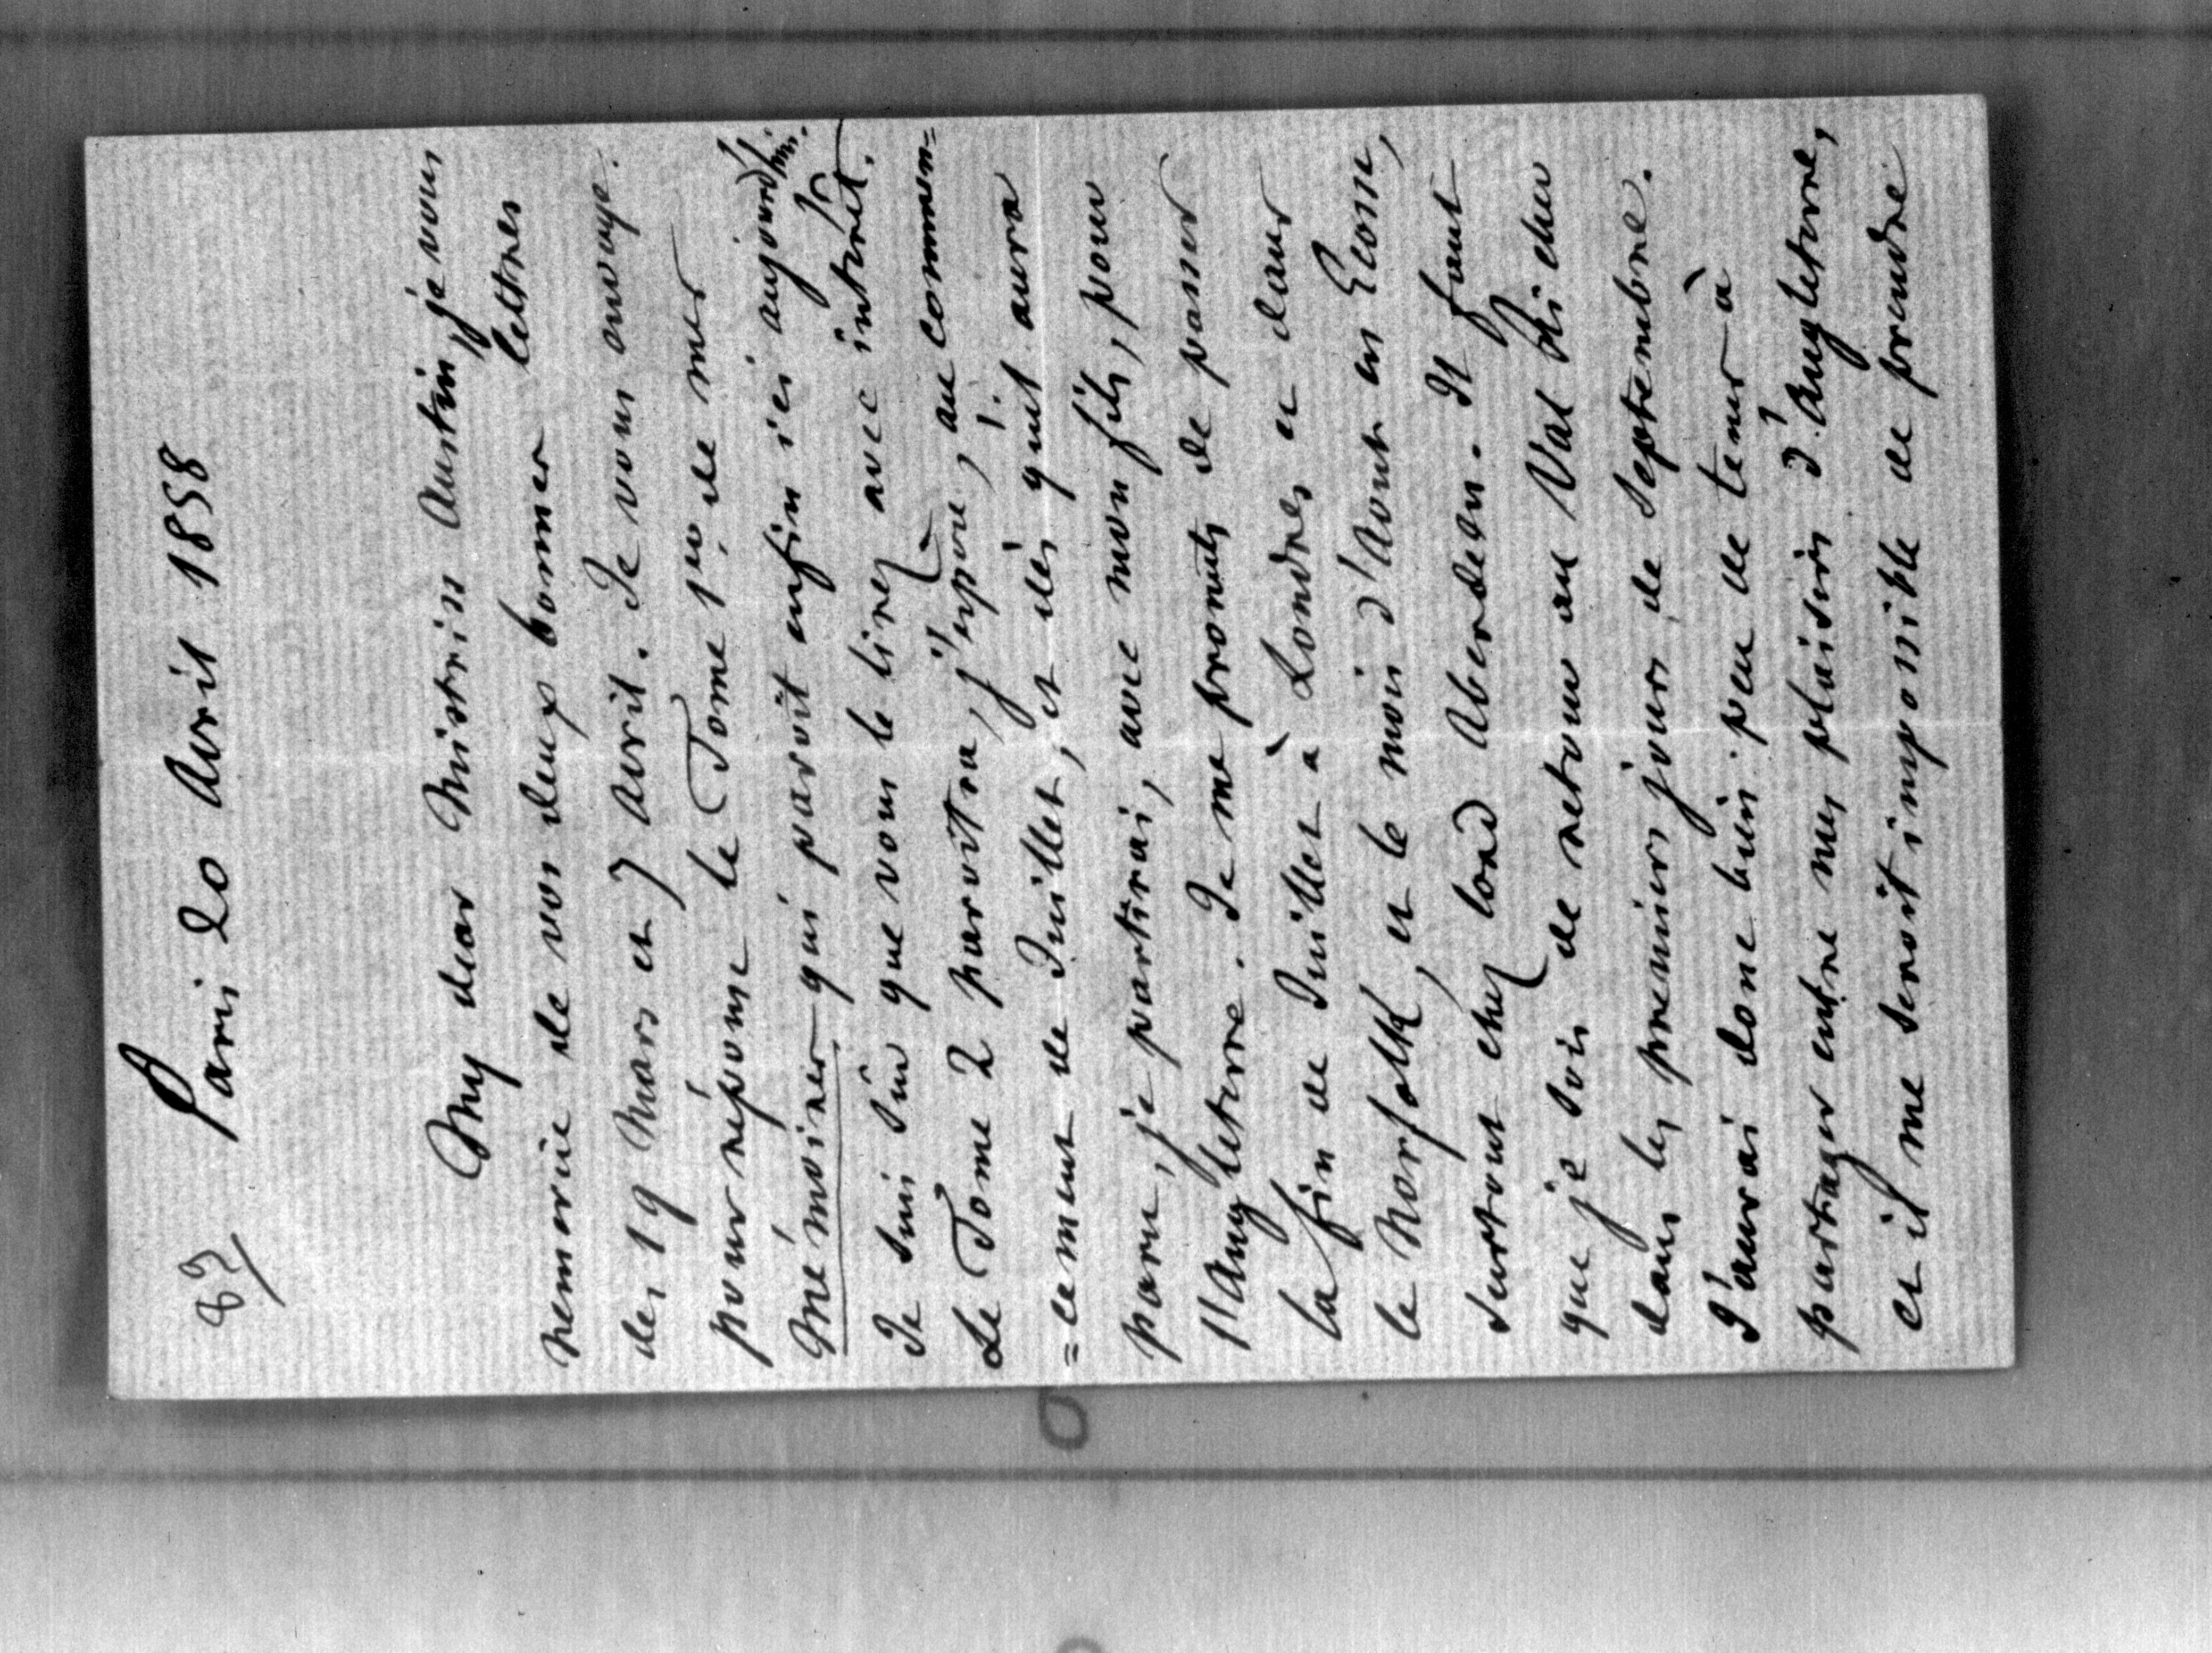 87/ Paris 20 Avril 1858
My dear Mistriss Austin, je vous
remercie de vos deux bonnes lettres
des 19 Mars et 7 Avril. Je vous envoye
pour réponse le Tome 1er de mes
Mémoires qui paroit enfin ici aujourd'hui.
Je suis sûr que vous le lirez avec intérêt.
Le Tome 2 paroîtra, j'espère, au commen=
=cement de Juillet, et dès qu'il aura
paru, je partirai, avec mon fils, pour
l'Angleterre. Je me promets de passer
la fin de Juillet à Londres et dans
le Norfolk, et le mois d'Aout en Ecosse,
surtout chez lord Aberdeen. Il faut
que je sois de retour au Val Richer
dans les premiers jours de Septembre.
J'aurai donc bien peu de tems à
partager entre mes plaisirs d'Angleterre,
et il me seroit impossible de prendre